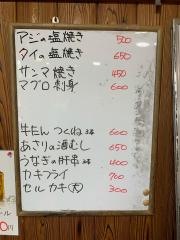 アジの塩焼き 500
タイの塩焼き 650
サンマ焼き 450
マグロ刺身 600
牛モん つくね 3本 600
あさりの酒むし 650
うなぎの肝串 2本 400
カキフライ 700
セルカキ(大) 300
ール
0円